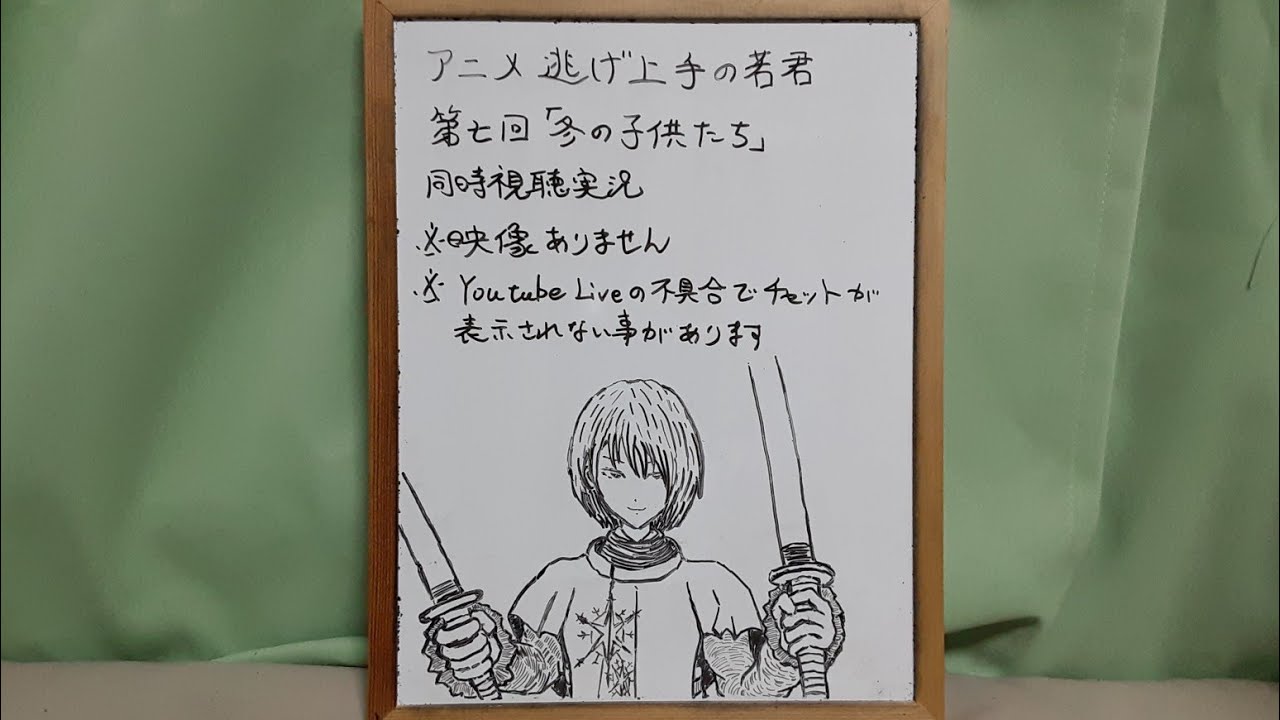 アニメ 逃げ上手の若君
第七回「冬の子供たち」
同時視聴実況
※映像ありません
※ Youtube Liveの不具合でチャットが
表示されない事があります